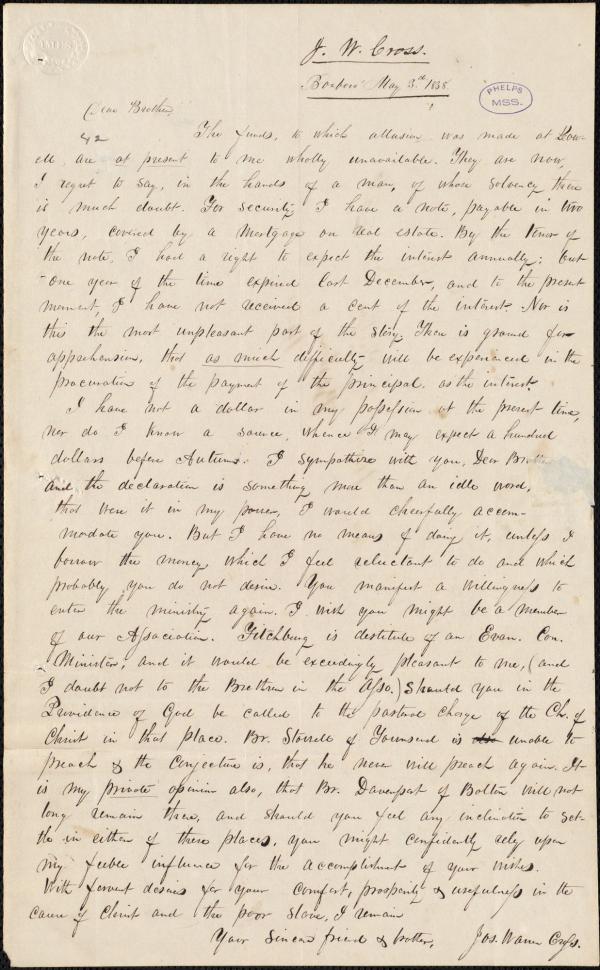 J. W. Cross.
Boxboro' May 3rd 1838
PHELPS
MSS.
Dear Brother,
42
The funds, to which allusion was made at Low-
ell, are at present to me wholly unavailable. They are now,
I regret to say, in the hands of a man, of whose solvency there
is much doubt. For security I have a note, payable in two
years, covered by a mortgage on real estate. By the tenor of
the note, I had a right to expect the interest annually; but
one year of the time expired last December, and to the present
moment, I have not received a cent of the interest. Nor is
this the most unpleasant part of the story. There is ground for
apprehension, that as much difficulty will be experienced in the
procuration of the payment of the principal, as the interest.
I have not a dollar in my possession at the present time,
nor do I know a source, whence I may expect a hundred
dollars before Autumn. I sympathize with you, Dear Brother
and the declaration is something more than an idle word,
that were it in my power, I would cheerfully accom-
modate you. But I have no means of doing it, unless I
borrow the money, which I feel reluctant to do and which
probably you do not desire. You manifest a willingness to
enter the ministry again. I wish you might be a member
of our Association. Fitchburg is destitute of an Evan. Con.
Minister, and it would be exceedingly pleasant to me, (and
I doubt not to the Brethren in the Asso.) should you in the
Providence of God be called to the pastoral charge of the Ch. of
Christ in that place. Br. Stowell of Townsend is unable to
preach & the conjecture is, that he never will preach again. It
is my private opinion also, that Br. Davenport of Bolton will not
long remain there, and should you feel any inclination to set-
tle in either of these places, you might confidently rely upon
my feeble influence for the accomplishment of your wishes.
With fervent desires for your comfort, prosperity & usefulness in the
cause of Christ and the poor slave, I remain
Your sincere friend & brother, Jos. Warren Cross.